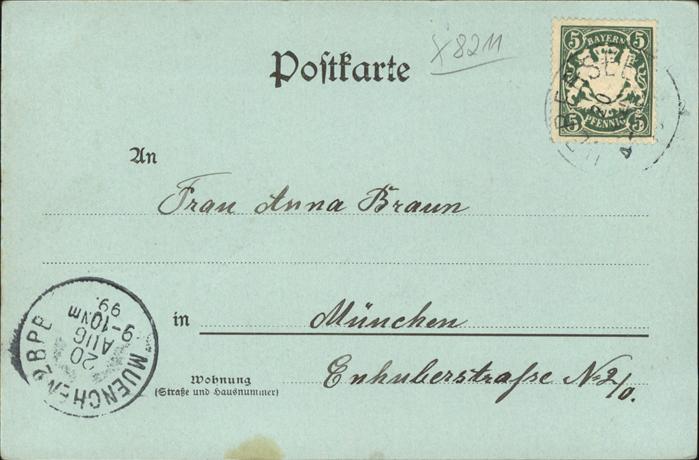 x 8211
Postkarte
5 BAYERN 5
5 PFENNIG 5
20
An
Frau Anna Braun
in München
Wohnung
(Straße und Hausnummer)
Enhuberstraße No 2/0.
MUENCHEN 2 BPB
20
AUG
9-10 Nm
99.